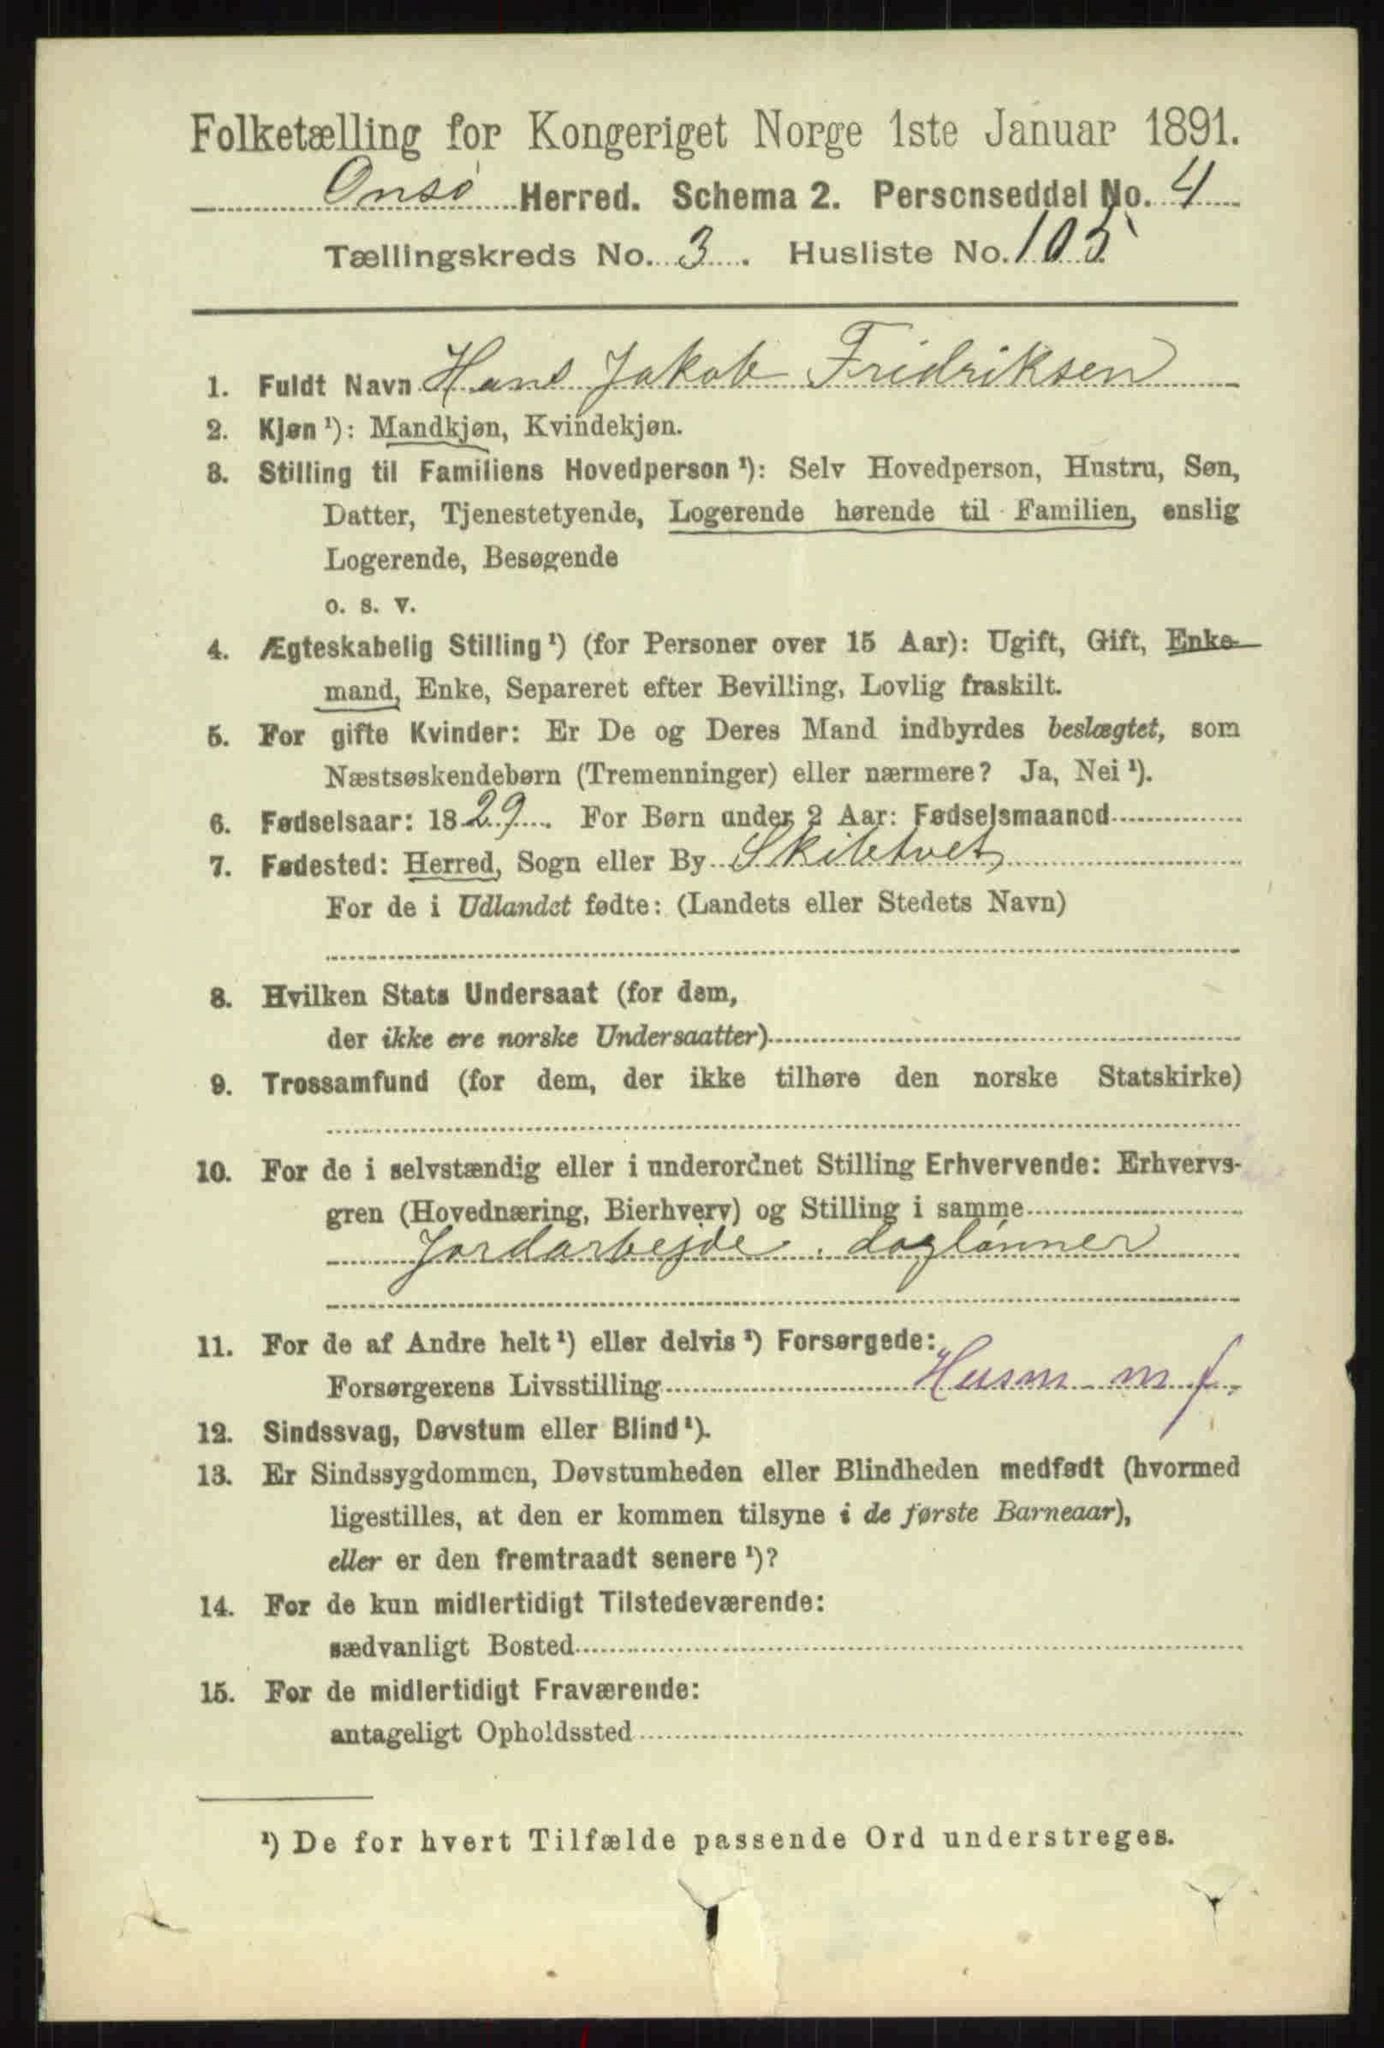 Folketælling for Kongeriget Norge 1ste Januar 1891.
Onsø Herred. Schema 2. Personseddel No. 4
Tællingskreds No. 3. Husliste No. 105
1. Fuldt Navn Hans Jakob Fridriksen
2. Kjøn ¹): Mandkjøn, Kvindekjøn.
3. Stilling til Familiens Hovedperson ¹): Selv Hovedperson, Hustru, Søn,
Datter, Tjenestetyende, Logerende hørende til Familien, enslig
Logerende, Besøgende
o. s. v.
4. Ægteskabelig Stilling ¹) (for Personer over 15 Aar): Ugift, Gift, Enke-
mand, Enke, Separeret efter Bevilling, Lovlig fraskilt.
5. For gifte Kvinder: Er De og Deres Mand indbyrdes beslægtet, som
Næstsøskendebørn (Tremenninger) eller nærmere? Ja, Nei ¹).
6. Fødselsaar: 1829. For Børn under 2 Aar: Fødselsmaaned
7. Fødested: Herred, Sogn eller By Skibtvet
For de i Udlandet fødte: (Landets eller Stedets Navn)
8. Hvilken Stats Undersaat (for dem,
der ikke ere norske Undersaatter)
9. Trossamfund (for dem, der ikke tilhøre den norske Statskirke)
10. For de i selvstændig eller i underordnet Stilling Erhvervende: Erhvervs-
gren (Hovednæring, Bierhverv) og Stilling i samme
Jordarbejde. daglønner
11. For de af Andre helt ¹) eller delvis ¹) Forsørgede:
Forsørgerens Livsstilling Husm m f.
12. Sindssvag, Døvstum eller Blind ¹).
13. Er Sindssygdommen, Døvstumheden eller Blindheden medfødt (hvormed
ligestilles, at den er kommen tilsyne i de første Barneaar),
eller er den fremtraadt senere ¹)?
14. For de kun midlertidigt Tilstedeværende:
sædvanligt Bosted
15. For de midlertidigt Fraværende:
antageligt Opholdssted
¹) De for hvert Tilfælde passende Ord understreges.